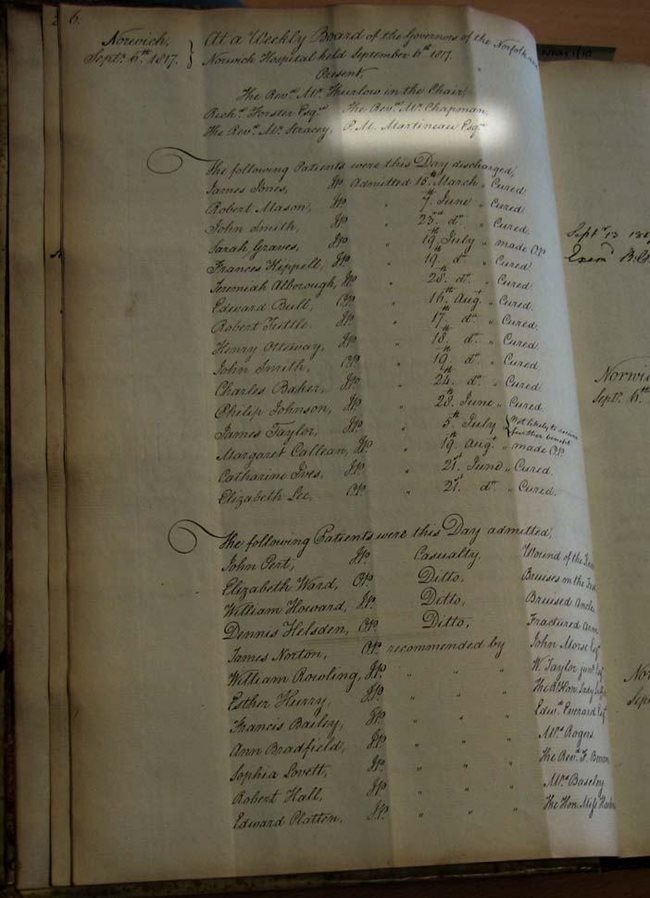 6.
Norwich,
Septr. 6th. 1817.
At a Weekly Board of the Governors of the Norfolk and
Norwich Hospital held September 6th 1817.
Present,
The Revd. Mr. Thurlow in the Chair
Richd. Forster Esqr. The Revd. Mr. Chapman,
The Revd. Mr. Stracey, P. M. Martineau Esqr.
The following Patients were this Day discharged,
James Jones, Ip. Admitted 15th. March " Cured
Robert Mason, Ip. " 7th. June " Cured
John Smith, Ip. " 23rd. do. " Cured.
Sarah Graves, Ip. " 19th. July " made Op.
Frances Kippell, Ip. " 19th. do. " Cured.
Jeremiah Alborough, Ip. " 28th. do. " Cured.
Edward Bull, Op. " 16th. Augt. " Cured.
Robert Tuttle Ip. " 17th. do. " Cured.
Henry Ottiway, Ip. " 18th. do. " Cured.
John Smith, Op. " 19th. do. " Cured.
Charles Baker, Ip. " 24th. do. " Cured
Philip Johnson, Ip. " 28th. June " Cured.
James Taylor, Ip. " 5th July { Not likely to receive further benefit
Margaret Callean, Ip. " 19th. Augt. " made Op.
Catharine Ives, Ip. " 21st. June " Cured.
Elizabeth Lee, Op. " 21st. do. " Cured.
The following Patients were this Day admitted,
John Pert, Ip. Casualty, Wound of the
Elizabeth Ward, Op. Ditto, Bruises on the
William Howard, Ip. Ditto, Bruised Ancle
Dennis Helsden, Op. Ditto, Fractured Arm
James Norton, Op. recommended by John Morse Esqr
William Rowling, Ip. " " " W. Taylor junr. Esqr
Esther Hurry, Ip. " " " The Rt. Hon. Lady
Francis Bailey, Ip. " " " Edwd. Everard Esqr
Ann Bradfield, Ip. " " " Mrs. Rogers
Sophia Lovett, Ip. " " " The Revd. F.
Robert Hall, Ip. " " " Mrs. Baseley
Edward Platten, Ip. " " " The Hon. Miss
Septr. 13
Norwich
Septr. 6th.